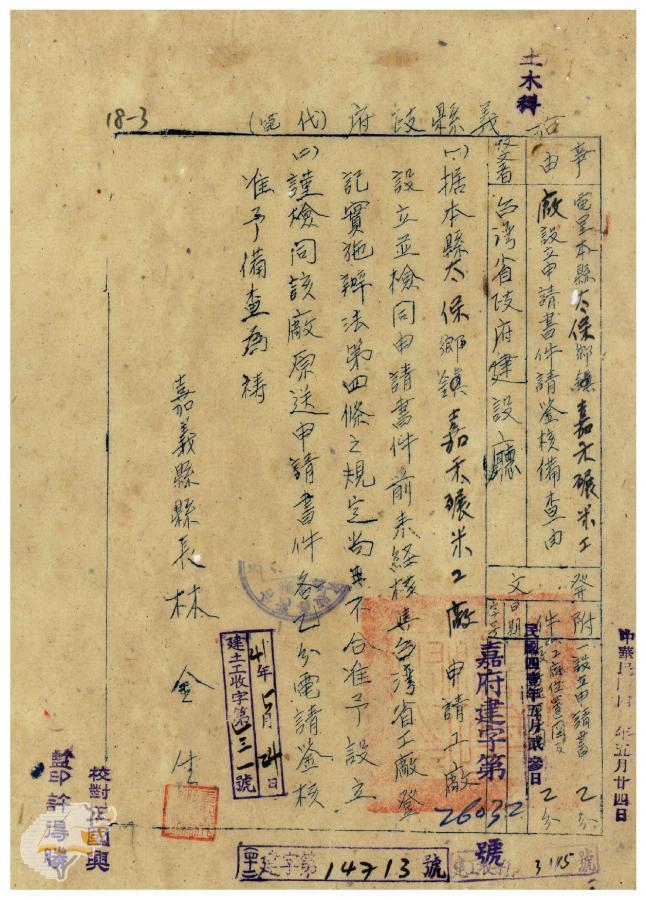 土木科
18-3
嘉義縣政府(代電)
事由
電呈本縣太保鄉鎮嘉禾碾米工
廠設立申請書件請鑒核備查由
受文者
台灣省政府建設廳
發文
日期
民國四壹年五月貳參日
字號
嘉府建字第26032號
附件
一設立申請書乙分
工廠位置圖乙分
(一)据本縣太保鄉鎮嘉禾碾米工廠申請工廠
設立並檢同申請書件前來経核與台湾省工廠登
記實施辦法第四條之規定尚無不合准予設立
(二)謹檢同該廠原送申請書件各乙分電請鑒核
准予備查為禱
嘉義縣縣長林金生
41年5月24日
建土工收字第
一號
中華民國
年五月廿四日
校對汪國興
監印許得勝
建字第14713號
號